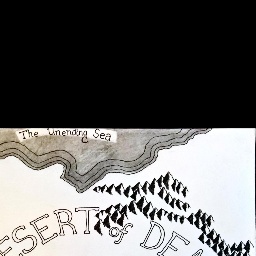 The Unending Sea
ESERT of DEA